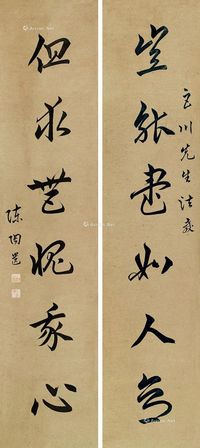 豈能盡如人意
石川先生法家
但求無愧我心
陳陶遺